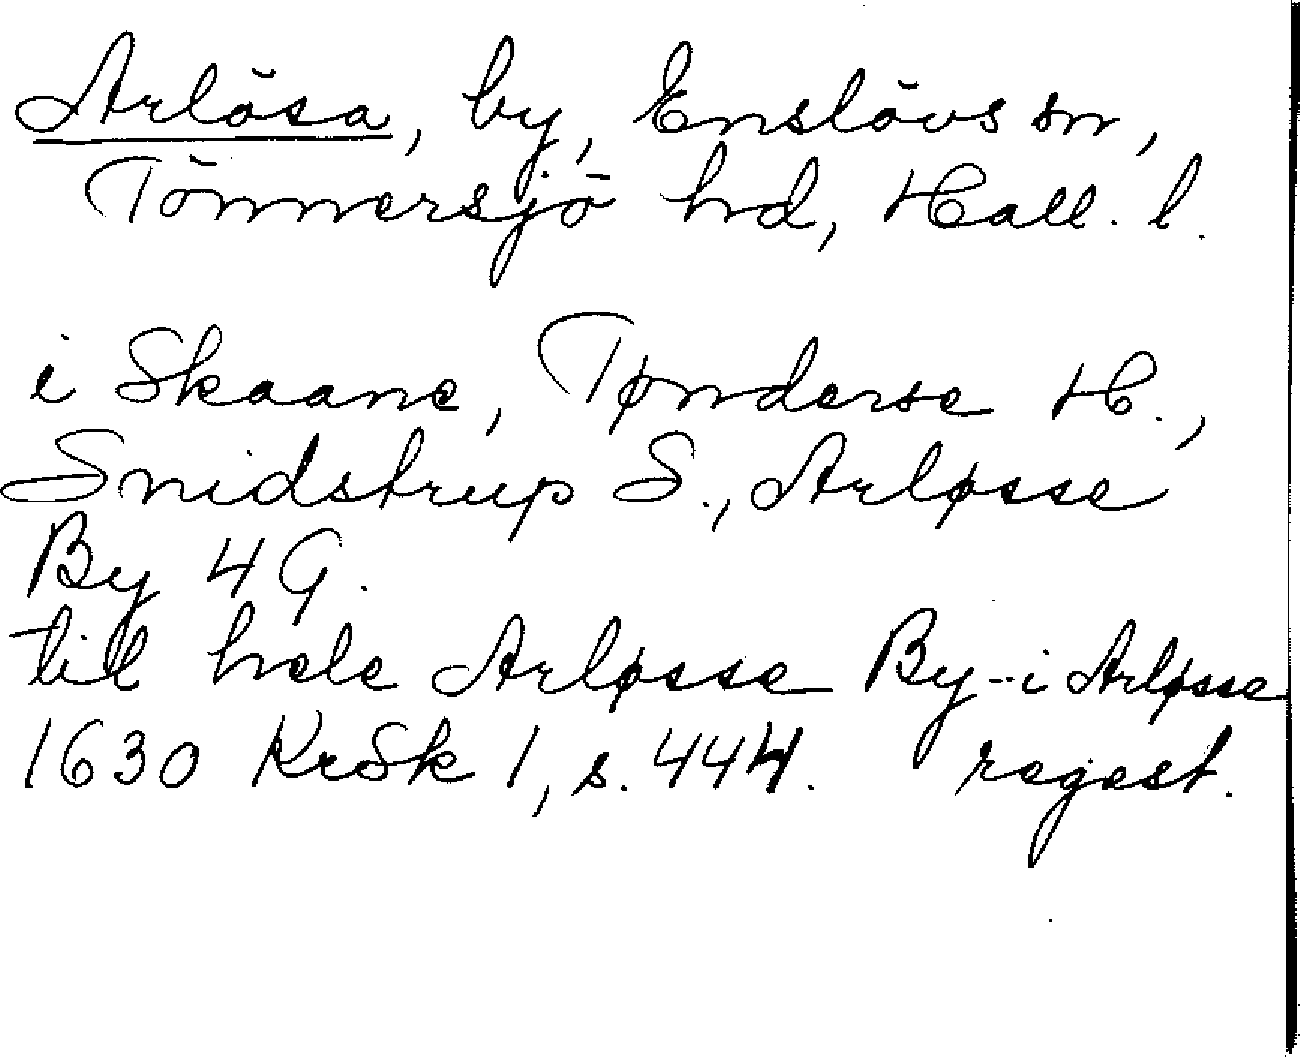 Arlösa, by, Enslövs sn,
Tönnersjö hd, Hall. l.
i Skaane, Tønderse H.,
Snidstrup S., Arløsse
By 4 G.
till hele Arløsse By - i Arløsse
1630 KrSk 1, s. 444. regest.